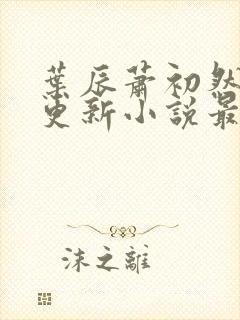 葉辰蕭初然
更新小說最
沫之離